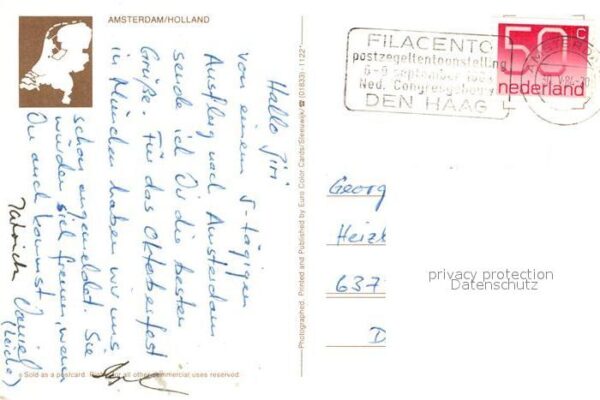 AMSTERDAM/HOLLAND
Hallo Jiri
von einem 5-tägigen
Ausflug nach Amsterdam
sende ich Dir die besten
Grüße. Für das Oktoberfest
in München haben wir uns
schon angemeldet. Sie
würden sich freuen, wenn
Du auch kommst
Daniel
(Leiche)
Photographed. Printed and Published by Euro Color Cards/Steeuwijk (01833)-1122*
Sold as a postcard. Rights for all other commercial uses reserved.
FILACENTO
postzegeltentoonstelling
6-9 september 1984
Ned. Congresgebouw
DEN HAAG
50 c
nederland
AMSTERDA
Georg
637
D
privacy protection
Datenschutz